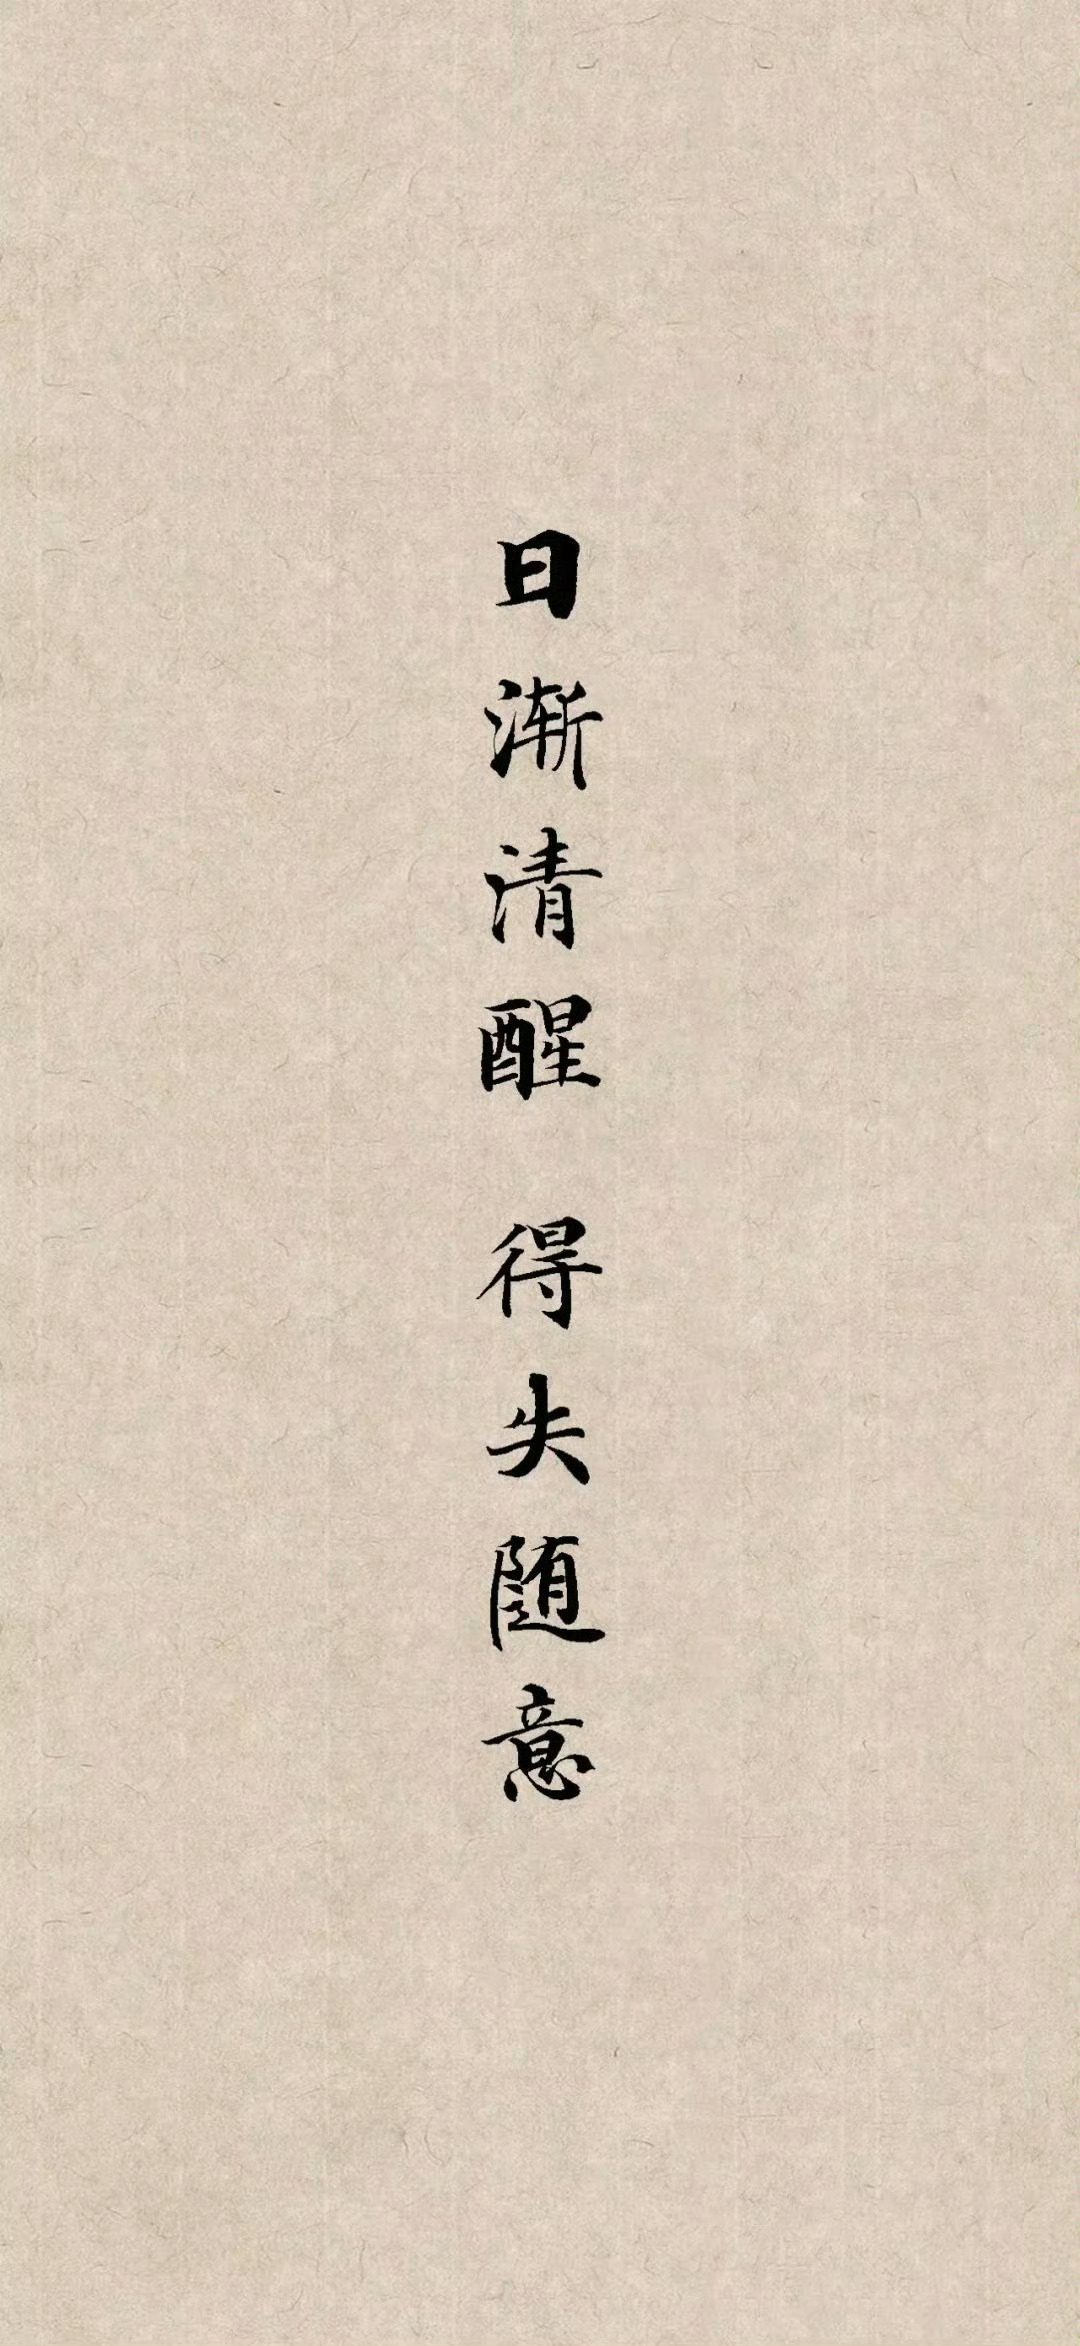 日渐清醒 得失随意